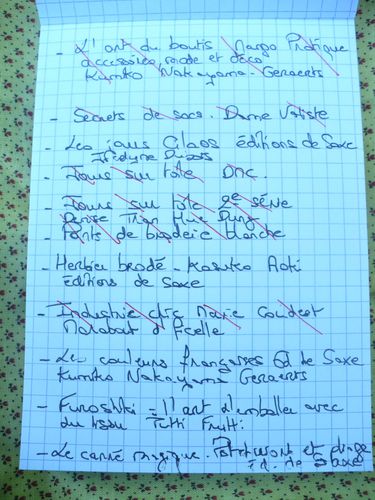 - L'art du boutis Margo Pratique
accessoires mode et deco
Kumiko Nakayama-Geraerts
- Secrets de sacs. Dame
- Les jours Cilaos éditions de Saxe
- Jours sur toile DMC.
- Jours sur toile 2e série
- Points de broderie blanche
- Herbier brodé - Kazuko Aoki
éditions de Saxe
- Industrie chic Marie
- Les couleurs françaises Ed de Saxe
Kumiko Nakayama Geraerts
- Furoshiki = l'art d'emballer avec
du tissu Tutti Frutti.
- Le carré magique. Patchwork et
Ed. de Saxe